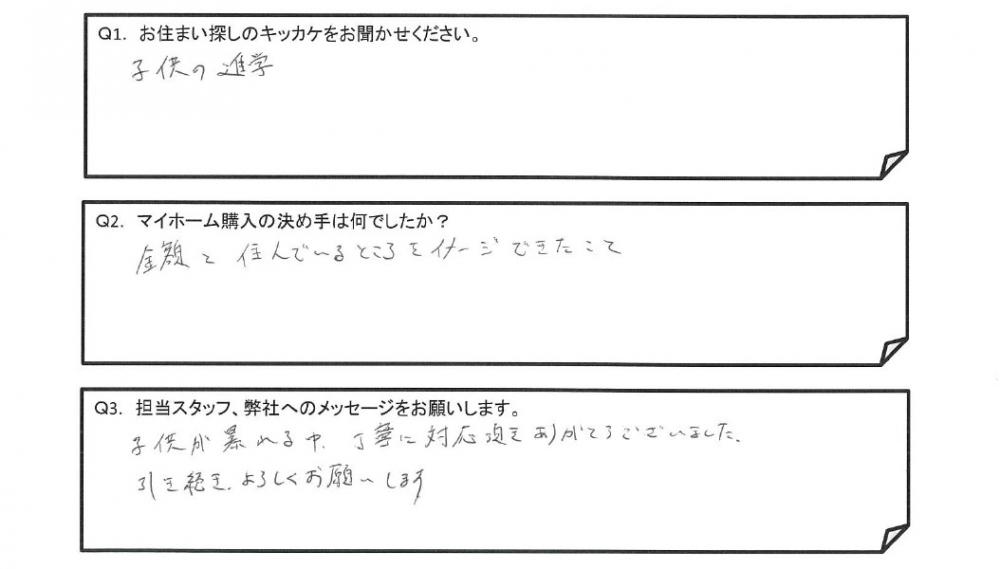 Q1. お住まい探しのキッカケをお聞かせください。
子供の進学
Q2. マイホーム購入の決め手は何でしたか？
金額と住んでいるところをイメージできたこと
Q3. 担当スタッフ、弊社へのメッセージをお願いします。
子供が暴れる中、丁寧に対応頂きありがとうございました。
引き続き、よろしくお願いします